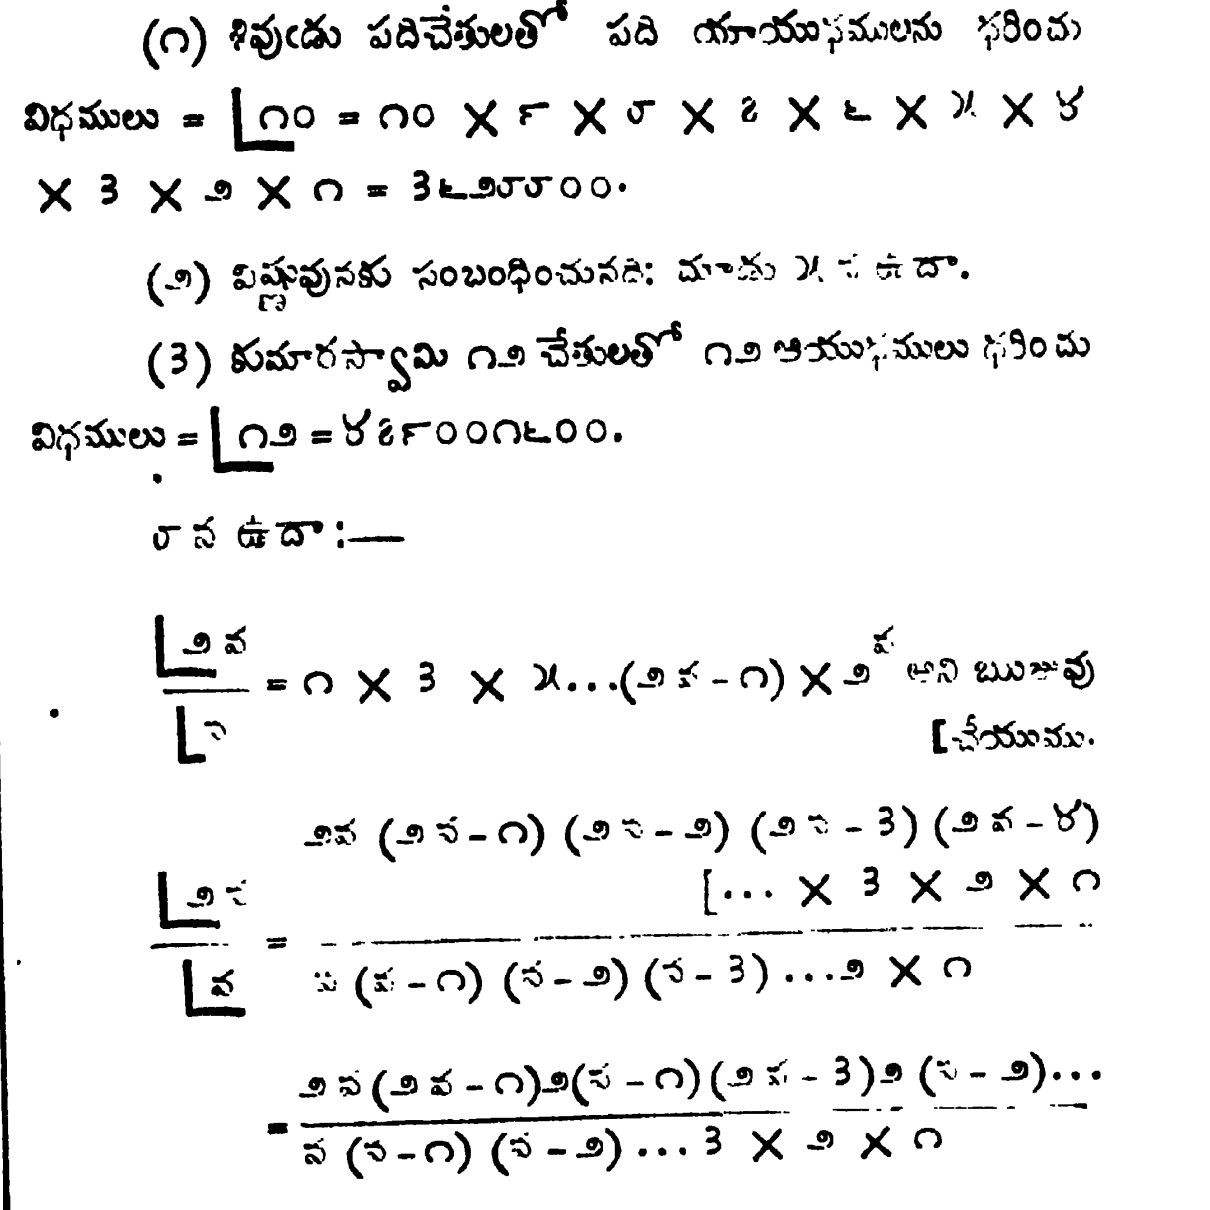 (౧) శివుఁడు పదిచేతులతో పది యాయుధములను ధరించు
విధములు = |౧౦ = ౧౦ × ౯ × ౮ × ౭ × ౬ × ౫ × ౪
× ౩ × ౨ × ౧ = ౩౬౨౮౮౦౦.
(౨) విష్ణువునకు సంబంధించునది: చూడు ౫ న ఉదా.
(౩) కుమారస్వామి ౧౨ చేతులతో ౧౨ ఆయుధములు ధరించు
విధములు = |౧౨ = ౪౭౯౦౦౧౬౦౦.
౮ న ఉదా :—
|౨న
= ౧ × ౩ × ౫...(౨న - ౧) × ౨^న అని ఋజువు
|న
[చేయుము.
౨న (౨న - ౧) (౨న - ౨) (౨న - ౩) (౨న - ౪)
|౨న [... × ౩ × ౨ × ౧
=
|న న (న - ౧) (న - ౨) (న - ౩) ...౨ × ౧
౨న(౨న - ౧)౨(న - ౧)(౨న - ౩)౨(న - ౨)...
=
న (న - ౧) (న - ౨) ...౩ × ౨ × ౧